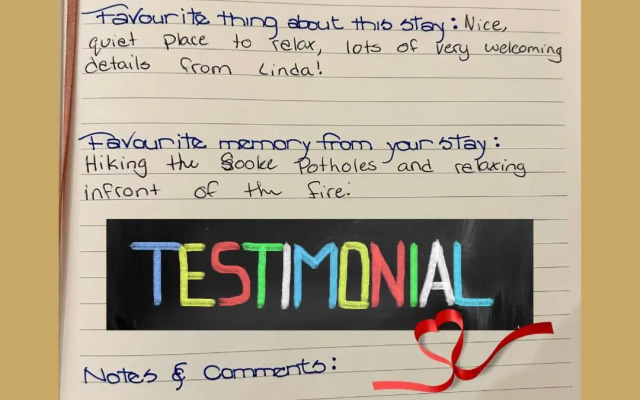 Favourite thing about this stay: Nice,
quiet place to relax, lots of very welcoming
details from Linda!
Favourite memory from your stay:
Hiking the Sooke Potholes and relaxing
infront of the fire.
TESTIMONIAL
Notes & Comments: